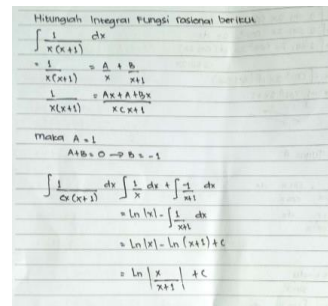 Hitunglah Integral Fungsi rasional berikut
∫ 1/x(x+1) dx
= 1/x(x+1) = A/x + B/x+1
1/x(x+1) = Ax+A+Bx/x(x+1
maka A = 1
A+B = 0 → B = -1
∫ 1/(x(x+1) dx ∫ 1/x dx + ∫ -1/x+1 dx
= Ln |x| - ∫ 1/x+1 dx
= Ln |x| - Ln (x+1) + c
= Ln |x/x+1| + c